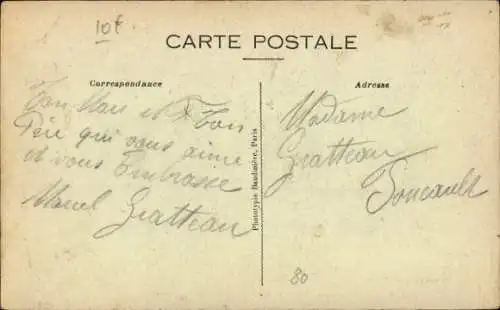 10f
CARTE POSTALE
Correspondance
Adresse
Ton Mari et Ton
Père qui vous aime
et vous Embrasse
Marcel Gratteau
Madame
Gratteau
Foucault
Phototypie Baudinière, Paris
80